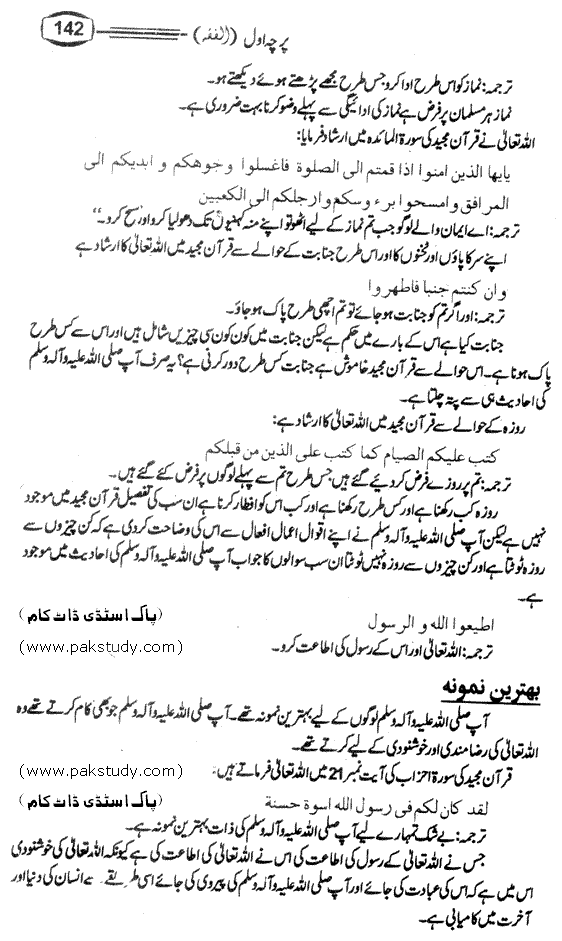 142
پرچہ اول (الفقہ)
ترجمہ: نماز کو اس طرح ادا کرو جس طرح مجھے پڑھتے ہوئے دیکھتے ہو۔
نماز ہر مسلمان پر فرض ہے نماز کی ادائیگی سے پہلے وضو کرنا بہت ضروری ہے۔
اللہ تعالیٰ نے قرآن مجید کی سورۃ المائدہ میں ارشاد فرمایا:
یایها الذین امنوا اذا قمتم الی الصلوة فاغسلوا وجوهکم و ایدیکم الی
المرافق و امسحوا برء وسکم و ارجلکم الی الکعبین
ترجمہ: اے ایمان والے لوگو جب تم نماز کے لیے اٹھو تو اپنے منہ کہنیوں تک دھولیا کرو اور مسح کرو۔“
اپنے سر کا پاؤں اور ٹخنوں کا اور اس طرح جنابت کے حوالے سے قرآن مجید میں اللہ تعالیٰ کا ارشاد ہے
وان کنتم جنبا فاطهروا
ترجمہ: اور اگر تم کو جنابت ہو جائے تو تم اچھی طرح پاک ہو جاؤ۔
جنابت کیا ہے اس کے بارے میں حکم ہے لیکن جنابت میں کون کون سی چیزیں شامل ہیں اور اس سے کس طرح
پاک ہونا ہے۔ اس حوالے سے قرآن مجید خاموش ہے جنابت کس طرح دور کرنی ہے؟ یہ صرف آپ صلی اللہ علیہ وآلہ وسلم
کی احادیث ہی سے پتہ چلتا ہے۔
روزہ کے حوالے سے قرآن مجید میں اللہ تعالیٰ کا ارشاد ہے:
کتب علیکم الصیام کما کتب علی الذین من قبلکم
ترجمہ: تم پر روزے فرض کر دیئے گئے ہیں جس طرح تم سے پہلے لوگوں پر فرض کئے گئے ہیں۔
روزہ کب رکھنا ہے اور کس طرح رکھنا ہے اور کب اس کو افطار کرنا ہے ان سب کی تفصیل قرآن مجید میں موجود
نہیں ہے لیکن آپ صلی اللہ علیہ وآلہ وسلم نے اپنے اقوال اعمال افعال سے اس کی وضاحت کر دی ہے کہ کن چیزوں سے
روزہ ٹوٹتا ہے اور کن چیزوں سے روزہ نہیں ٹوٹتا ان سب سوالوں کا جواب آپ صلی اللہ علیہ وآلہ وسلم کی احادیث میں موجود
ہے۔
اطیعوا الله و الرسول (پاک اسٹڈی ڈاٹ کام)
ترجمہ: اللہ تعالیٰ اور اس کے رسول کی اطاعت کرو۔ (www.pakstudy.com)
بہترین نمونہ
آپ صلی اللہ علیہ وآلہ وسلم لوگوں کے لیے بہترین نمونہ تھے۔ آپ صلی اللہ علیہ وآلہ وسلم جو بھی کام کرتے تھے وہ
اللہ تعالیٰ کی رضامندی اور خوشنودی کے لیے کرتے تھے۔
قرآن مجید کی سورۃ احزاب کی آیت نمبر 21 میں اللہ تعالیٰ فرماتے ہیں: (www.pakstudy.com)
لقد کان لکم فی رسول الله اسوة حسنة (پاک اسٹڈی ڈاٹ کام)
ترجمہ: بے شک تمہارے لیے آپ صلی اللہ علیہ وآلہ وسلم کی ذات بہترین نمونہ ہے۔
جس نے اللہ تعالیٰ کے رسول کی اطاعت کی اس نے اللہ تعالیٰ کی اطاعت کی ہے کیونکہ اللہ تعالیٰ کی خوشنودی
اس میں ہے کہ اس کی عبادت کی جائے اور آپ صلی اللہ علیہ وآلہ وسلم کی پیروی کی جائے اسی طریقے سے انسان کی دنیا اور
آخرت میں کامیابی ہے۔